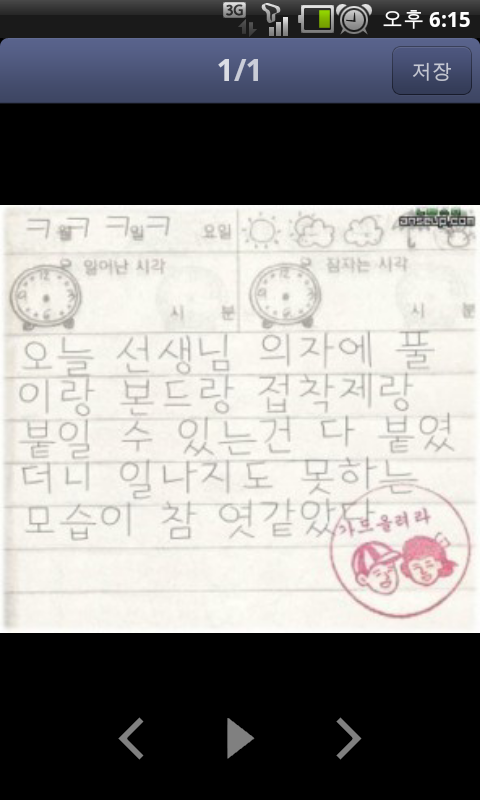 3G 오후 6:15
1/1 저장
ㅋ월ㅋ ㅋ일ㅋ 요일
일어난 시각 잠자는 시각
시 분 시 분
오늘 선생님 의자에 풀
이랑 본드랑 접착제랑
붙일 수 있는건 다 붙였
더니 일나지도 못하는
모습이 참 엿같았다
가드올려라